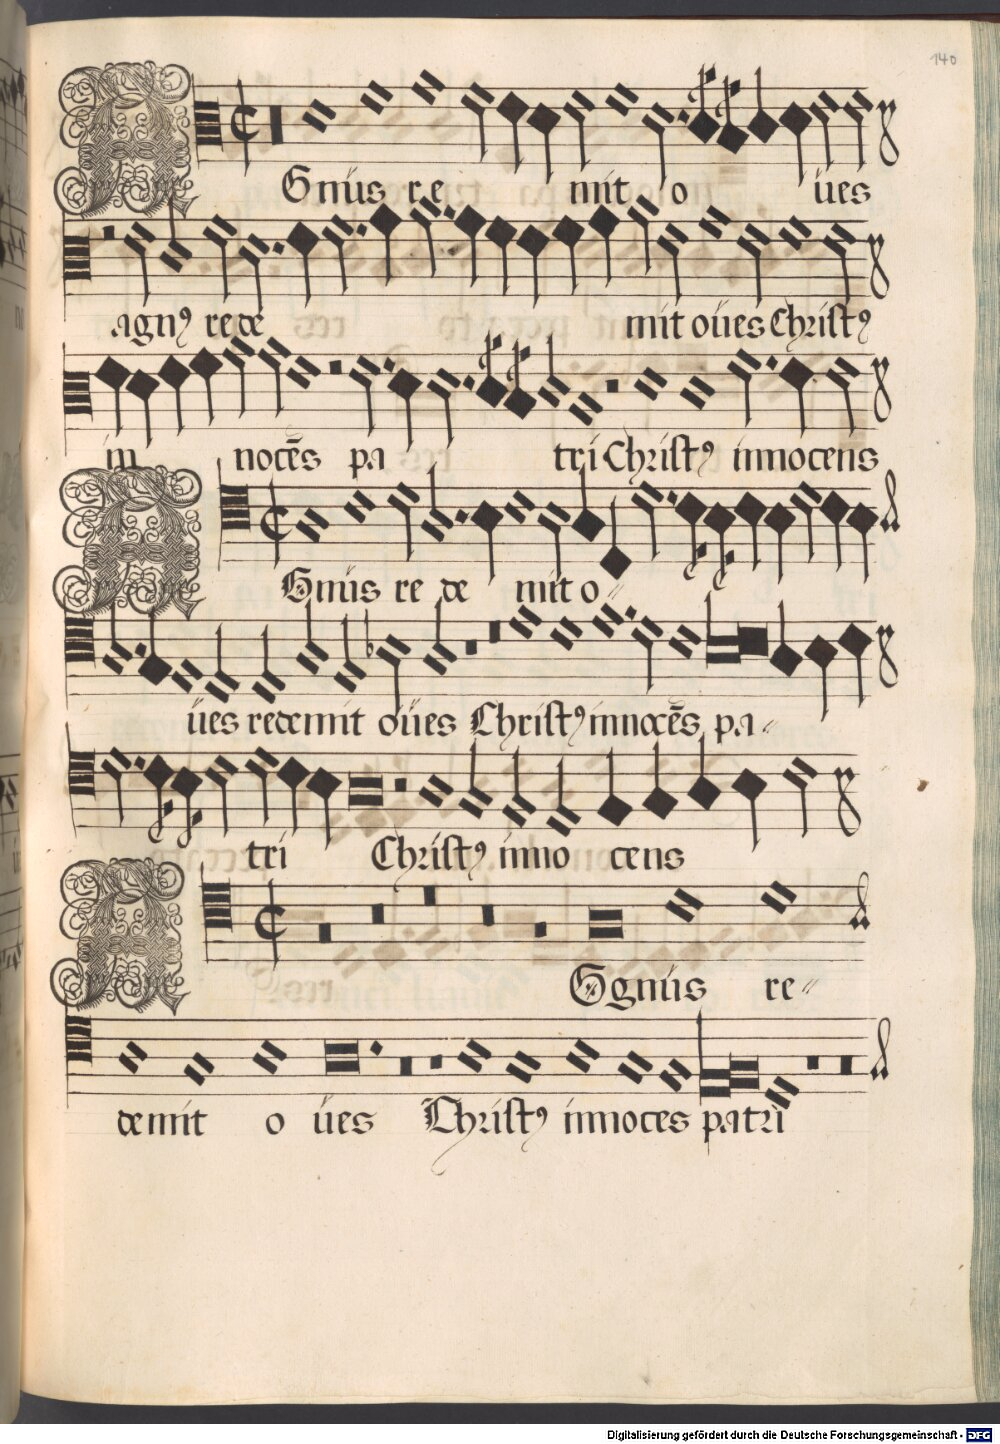 140
AGnus re mit o ues
agnꝰ rede mit oues Christꝰ
in nocēs pa tri Christꝰ innocens
AGnus re de mit o
ues redemit oues Christꝰ innocēs pa
tri Christꝰ inno cens
AGgnus re
demit o ues Christꝰ innoces patri
Digitalisierung gefördert durch die Deutsche Forschungsgemeinschaft - DFG